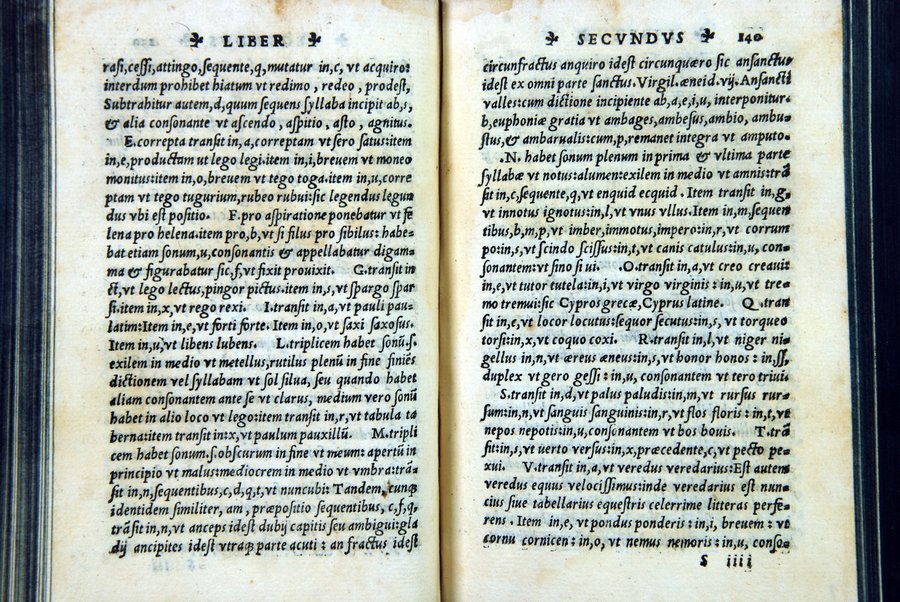 LIBER
rasi,cessi,attingo,sequente,q,mutatur in,c, vt acquiro:
interdum prohibet hiatum vt redimo , redeo , prodest,
Subtrahitur autem,d,quum sequens syllaba incipit ab,s,
& alia consonante vt ascendo , aspitio , asto , agnitus.
E.correpta transit in,a,correptam vt sero satus:item
in,e,productum ut lego legi.item in,i,breuem vt moneo
monitus:item in,o,breuem vt tego toga.item in,u,corre
ptam vt tego tugurium,rubeo rubui:sic legendus legun
dus vbi est positio. F.pro aspiratione ponebatur vt fe
lena pro helena.item pro,b,vt si filus pro sibilus: habe-
bat etiam sonum,u,consonantis & appellabatur digam-
ma & figurabatur sic,f,vt fixit prouixit. G.transit in
ct,vt lego lectus,pingor pictus.item in,s,vt spargo spar
si.item in,x,vt rego rexi. I.transit in,a,vt pauli pau-
latim:Item in,e,vt forti forte. Item in,o,vt saxi saxosus.
Item in,u,vt libens lubens. L.triplicem habet sonū.s.
exilem in medio vt metellus,rutilus plenū in fine finiēs
dictionem vel syllabam vt sol silua, seu quando habet
aliam consonantem ante se vt clarus, medium vero sonū
habet in alio loco vt lego:item transit in,r,vt tabula ta
berna:item transit in:x,vt paulum pauxillū. M.tripli
cem habet sonum.s.obscurum in fine vt meum: apertū in
principio vt malus:mediocrem in medio vt vmbra:trā-
sit in,n,sequentibus,c,d,q,t,vt nuncubi: Tandem, cunq
identidem similiter, am , præpositio sequentibus, c,f,q,
trāsit in,n,vt anceps idest dubij capitis seu ambigui:gla
dij ancipites idest vtraq parte acuti : an fractus idest
SECVNDVS 140
circunfractus anquiro idest circunquæro sic ansanctus
idest ex omni parte sanctus. Virgil.æneid.vij. Ansancti
valles:cum dictione incipiente ab,a,e,i,u, interponitur-
b,euphoniæ gratia vt ambages,ambesus,ambio, ambu-
stus,& ambarualis:cum,p,remanet integra vt amputo-
.N. habet sonum plenum in prima & vltima parte
syllabæ vt notus:alumen:exilem in medio vt amnis:trā
sit in,c,sequente,q,vt enquid ecquid . Item transit in,g,
vt innotus ignotus:in,l,vt vnus vllus.Item in,m,sequen
tibus,b,m,p,vt imber,immotus,impero:in,r,vt corrum
po:in,s,vt scindo scissus:in,t,vt canis catulus:in,u, con-
sonantem:vt sino si ui. .O.transit in,a,vt creo creaui:
in,e,vt tutor tutela:in,i,vt virgo virginis : in,u,vt tre-
mo tremui:sic Cypros grecæ,Cyprus latine. Q.tran
sit in,e,vt locor locutus:sequor secutus:in,s, vt torqueo
torsi:in,x,vt coquo coxi. R.transit in,l,vt niger ni-
gellus in,n,vt æreus æneus:in,s,vt honor honos : in,ss,
duplex vt gero gessi : in,u, consonantem vt tero triui.
S.transit in,d,vt palus paludis:in,m,vt rursus rur-
sum:in,n,vt sanguis sanguinis:in,r,vt flos floris : in,t,vt
nepos nepotis:in,u,consonantem vt bos bouis. T.trā
sit:in,s,vt uerto versus:in,x,præcedente,c,vt pecto pe-
xui. V.transit in,a,vt veredus veredarius:Est autem
veredus equus velocissimus:inde veredarius est nun-
cius siue tabellarius equestris celerrime litteras perfe-
rens . Item in,e,vt pondus ponderis : in,i, breuem : vt
cornu cornicen : in,o, vt nemus nemoris : in,u, conso-
S iiij